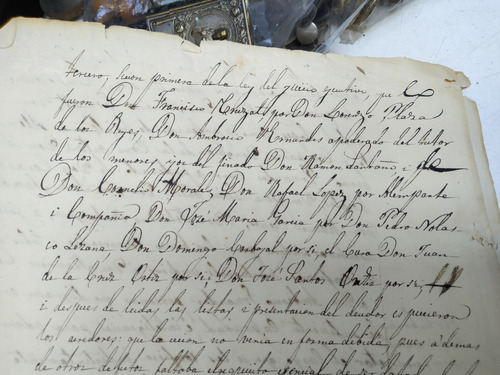 tercero, seccion primera de la ley del juicio ejecutivo, que
fueron Don Francisco Cruzat por Don Lorenzo Plaza
de los Reyes Don Ambrosio Hernandes apoderado del tutor
de los menores yos del finado Don Ramon i
Don Cornelio Morales, Don Rafael Lopez por Alempante
i Compañia Don José Maria Garcia por Don Pedro Nolas
co Lezana, Don Domingo Carbajal por si, el Cura Don Juan
de la Cruz Ortiz por si, Don José Santos Ortiz por si,
i despues de leidas las listas e presentacion del deudor espusieron
los acredores: que la cesion no venia en forma debida, pues ademas
de otros defectos faltaba el requisito esencial de